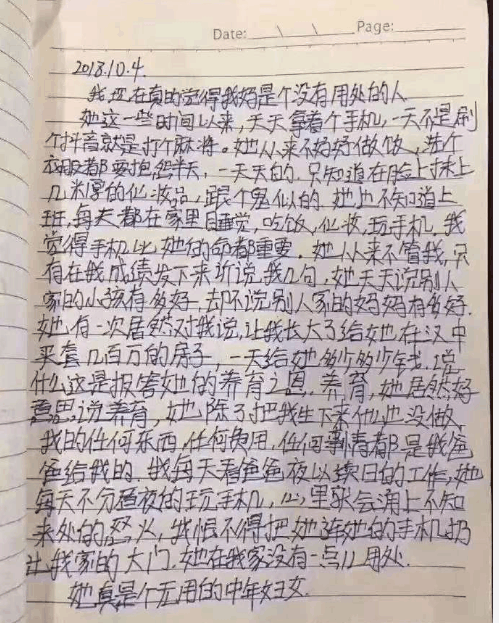 Date: Page:
2018.10.4.
我现在真的觉得我妈是个没有用处的人
她这一些时间以来,天天拿着个手机,一天不是刷
个抖音就是打个麻将。她从来不好好做饭,洗个
衣服都要抱怨半天,一天天的,只知道在脸上抹上
几米厚的化妆品,跟个鬼似的.她也不知道上
班,每天都在家里睡觉,吃饭,化妆,玩手机,我
觉得手机比她的命都重要.她从来不管我,只
有在我成绩发下来训说我几句,她天天说别人
家的小孩有多好,却不说别人家的妈妈有多好.
她有一次居然对我说,让我长大了给她在汉中
买套几百万的房子,一天给她多少多少钱,说
什么这是报答她的养育之恩.养育,她居然好
意思说养育,她除了把我生下来什么也没做,
我的任何东西,任何费用,任何 都是我爸
爸给我的.我每天看爸爸夜以续日的工作,她
每天不分昼夜的玩手机,心里就会涌上不知
来处的怒火,我恨不得把她连她的手机扔
出我家的大门.她在我家没有一点儿用处.
她真是个无用的中年妇女.